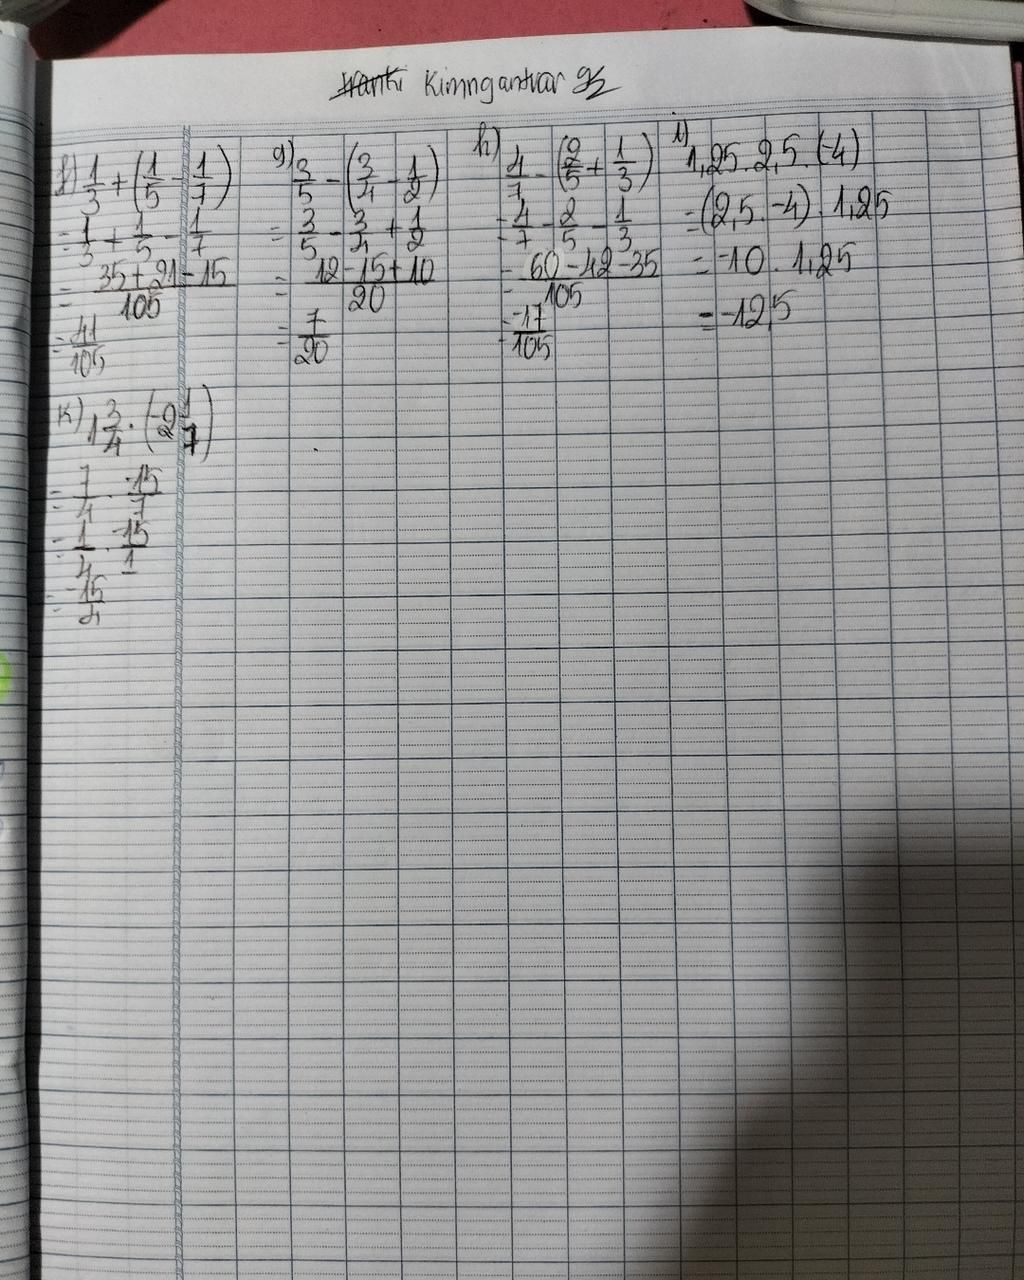 Kimngantrar 9/2
f) 1/3 + (1/5 - 1/7)
= 1/3 + 1/5 - 1/7
= (35 + 21 - 15)/105
= 41/105
g) 3/5 - (3/4 - 1/2)
= 3/5 - 3/4 + 1/2
= (12 - 15 + 10)/20
= 7/20
h) 4/7 - (2/5 + 1/3)
= 4/7 - 2/5 - 1/3
= (60 - 42 - 35)/105
= -17/105
i) 1,25 . 2,5 . (-4)
= (2,5 . -4) . 1,25
= -10 . 1,25
= -12,5
k) 1 3/4 . (-2 1/7)
= 7/4 . -15/7
= 1/4 . -15/1
= -15/4